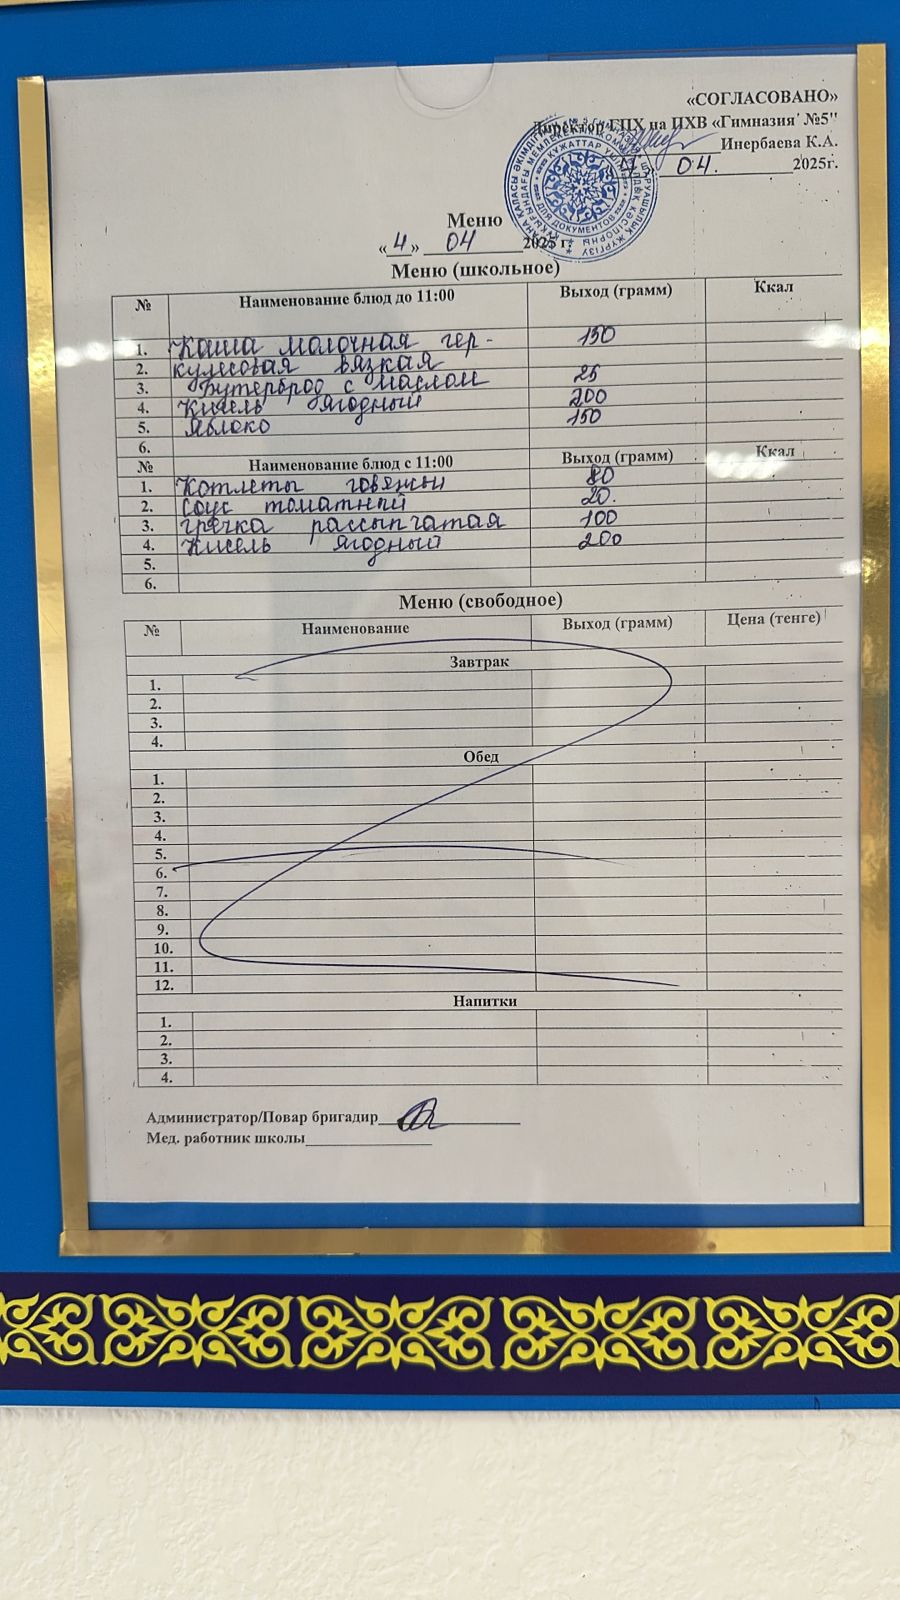 «СОГЛАСОВАНО»
Директор ГПХ на ПХВ «Гимназия №5"
Инербаева К.А.
04. 2025г.
Меню
«4» 04 2025 г.
Меню (школьное)
№ Наименование блюд до 11:00 Выход (грамм) Ккал
1. Каша молочная гер- 150
2. кулесовая вязкая
3. Бутерброд с маслом 25
4. Кисель ягодный 200
5. Яблоко 150
6.
№ Наименование блюд с 11:00 Выход (грамм) Ккал
1. Котлеты говяжьи 80
2. Соус томатный 20.
3. гречка рассыпчатая 100
4. Кисель ягодный 200
5.
6.
Меню (свободное)
№ Наименование Выход (грамм) Цена (тенге)
Завтрак
1.
2.
3.
4.
Обед
1.
2.
3.
4.
5.
6.
7.
8.
9.
10.
11.
12.
Напитки
1.
2.
3.
4.
Администратор/Повар бригадир
Мед. работник школы